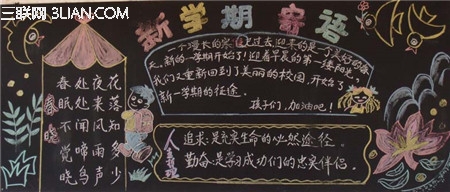 三联网 3LIAN.COM
新学期寄语
春晓
春眠不觉晓
处处闻啼鸟
夜来风雨声
花落知多少
一个漫长的寒假已过去迎来的是一个美好的春
天,新的一学期开始了!迎着早晨的第一缕阳光,
我们又重新回到了美丽的校园,开始了
新一学期的征途。
孩子们,加油吧!
追求:是充实生命的必然途径.
勤奋:是学习成功们的忠实伴侣.